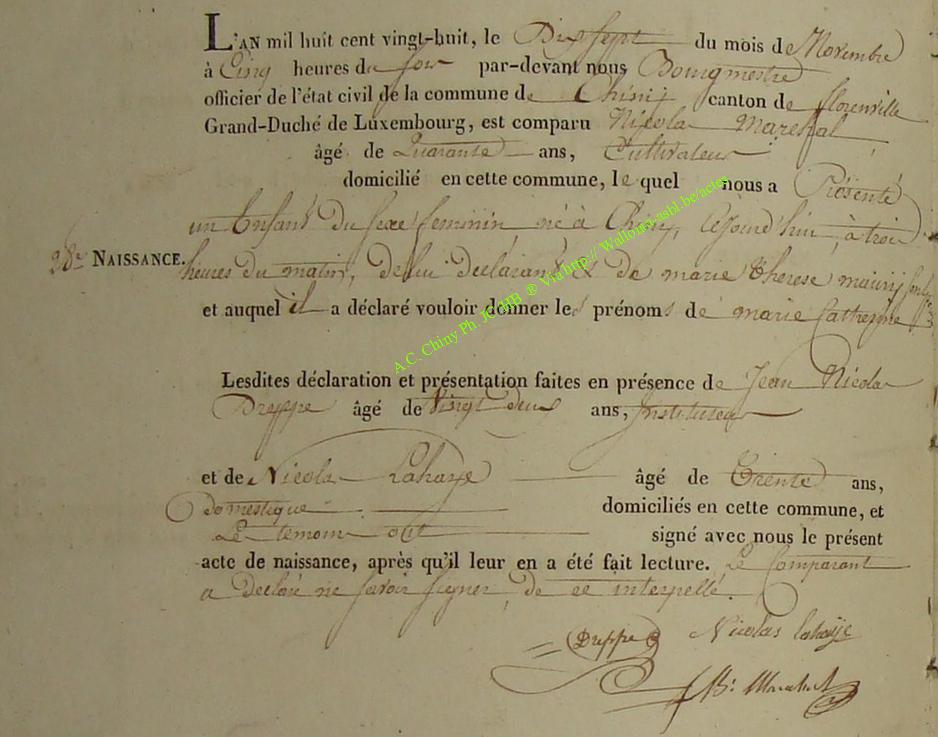 L'AN mil huit cent vingt-huit, le Dix sept du mois de Novembre
à Cinq heures du soir par-devant nous Bourgmestre
officier de l'état civil de la commune de Chiny canton de florenville
Grand-Duché de Luxembourg, est comparu Nicola Marechal
âgé de Quarante ans, Cultivateur
domicilié en cette commune, le quel nous a Présenté
un Enfant du sexe feminin né à Chiny, cejourd'hui, à trois
28e NAISSANCE. heures du matin, de lui declarant & de marie therese
et auquel il a déclaré vouloir donner les prénoms de marie Catherine
Lesdites déclaration et présentation faites en présence de Jean Nicola
Dreppe âgé de Vingt deux ans, Instituteur
et de Nicola Lahaye âgé de Trente ans,
domestique domiciliés en cette commune, et
Les temoins ont signé avec nous le présent
acte de naissance, après qu'il leur en a été fait lecture. Le Comparant
a Declaré ne savoir signer, de ce interpellé.
Dreppe Nicolas lahaÿe
A.C. Chiny Ph. JCMB ® Via http:// Wallonia-asbl.be/actes